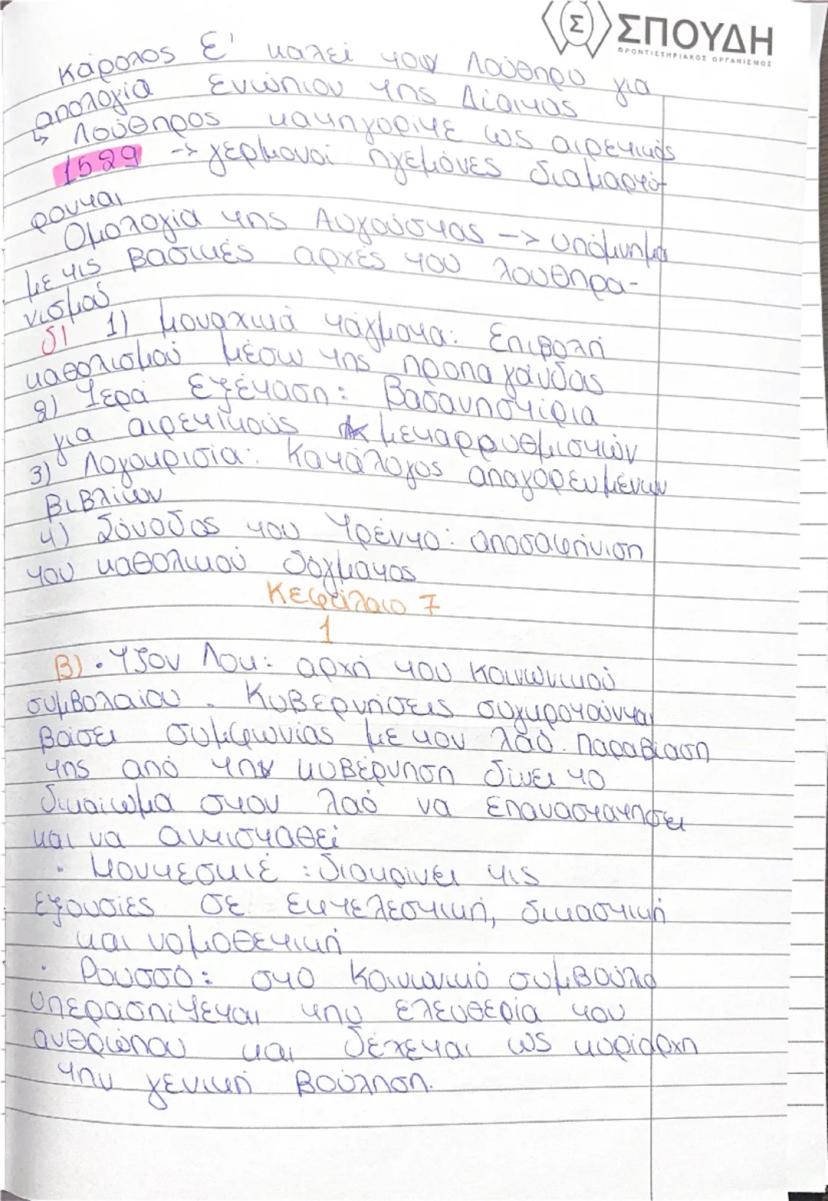 ΣΠΟΥΔΗ
ΦΡΟΝΤΙΣΤΗΡΙΑΚΟΣ ΟΡΓΑΝΙΣΜΟΣ
Κάρολος Ε' καλεί τον Λούθηρο για
απολογία ενώπιον της Δίαιτας
↳ Λούθηρος κατηγορίτε ως αιρετικός
1529 -> γερμανοί ηγεμόνες διαμαρτύ-
ρονται
Ομολογία της Αυγούστας -> υπόμνημα
με τις βασικές αρχές του λουθηρα-
νισμού
δ) 1) μοναχικά τάγματα: Επιβολή
καθολισμού μέσω της προπαγάνδας
2) Ιερά Εξέταση: Βασανιστίρια
για αιρετικούς μεταρρυθμιστών
3) Λογοκρισία: Κατάλογος απαγορευμένων
βιβλίων
4) Σύνοδος του Τρέντο: αποσαφήνιση
του καθολικού δόγματος
Κεφάλαιο 7
1
β) • Τζον Λοκ: αρχή του κοινωνικού
συμβολαίου. Κυβερνήσεις συγκροτούνται
βάσει συμφωνίας με τον λαό. Παραβίαση
της από την κυβέρνηση δίνει το
δικαίωμα στον λαό να επαναστατήσει
και να αντισταθεί
• Μοντεσκιέ: διακρίνει τις
εξουσίες σε εκτελεστική, δικαστική
και νομοθετική
• Ρουσσό: στο Κοινωνικό συμβούλο
υπερασπίζεται την ελευθερία του
ανθρώπου και δέχεται ως κυρίαρχη
την γενική βούληση.